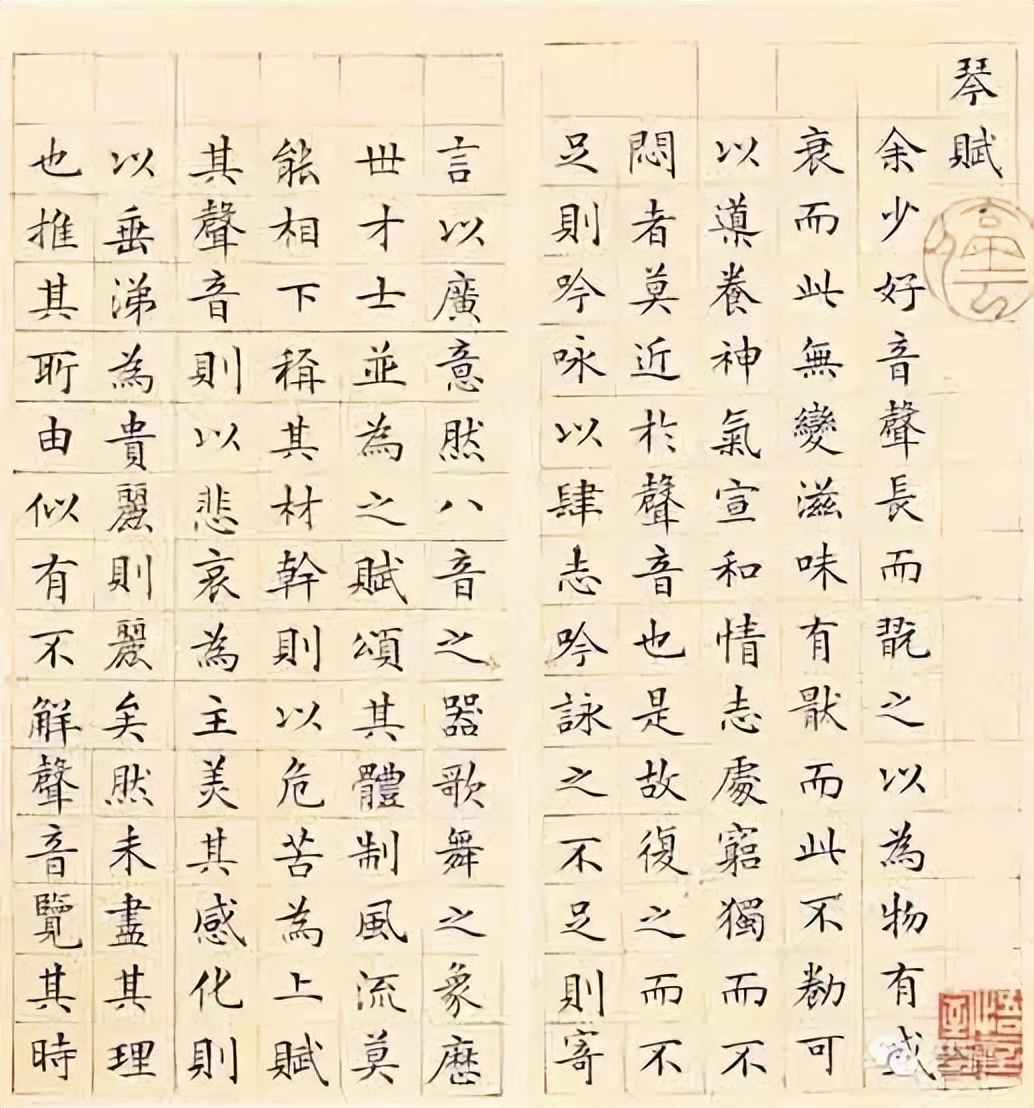 琴賦
余少好音聲長而翫之以為物有盛
衰而此無變滋味有猒而此不勌可
以導養神氣宣和情志處窮獨而不
悶者莫近於聲音也是故復之而不
足則吟咏以肆志吟詠之不足則寄
言以廣意然八音之器歌舞之象歷
世才士並為之賦頌其體制風流莫
能相下稱其材幹則以危苦為上賦
其聲音則以悲哀為主美其感化則
以垂涕為貴麗則麗矣然未盡其理
也推其所由似有不解聲音覽其時